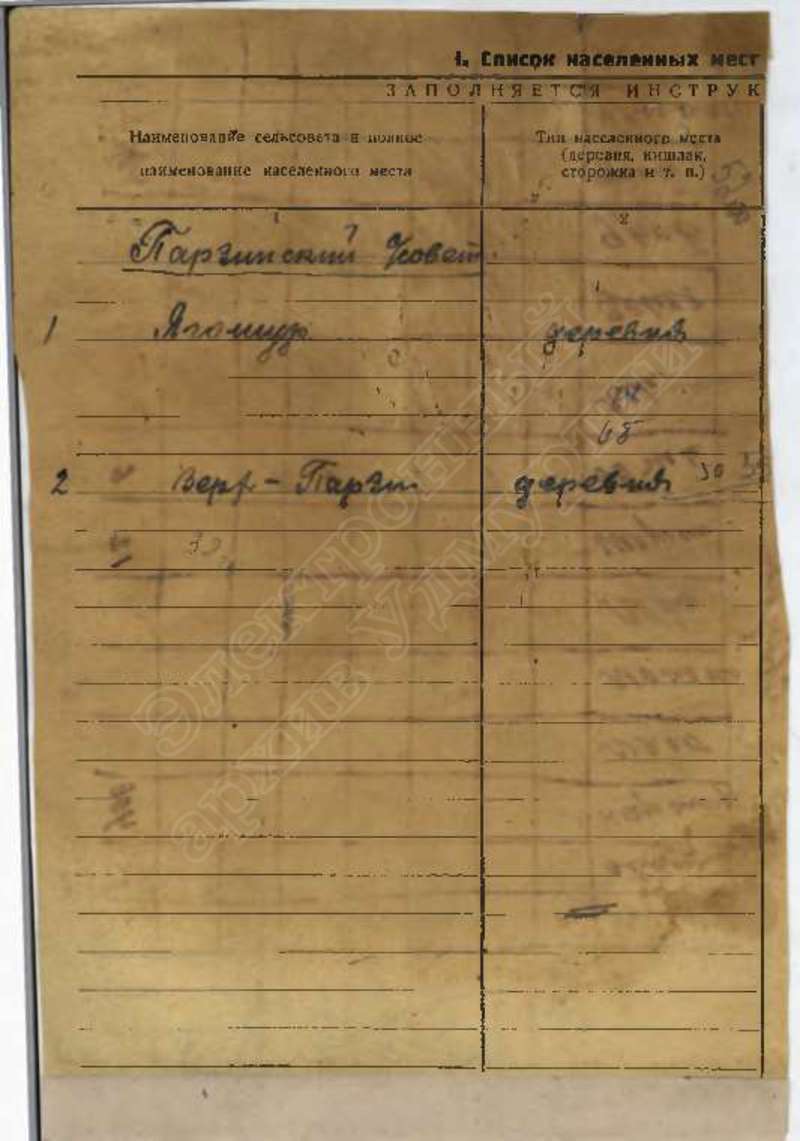 1. Список населенных мест
ЗАПОЛНЯЕТСЯ ИНСТРУК
Наименование сельсовета и полное
наименование населенного места
Тип населенного места
(деревня, кишлак,
сторожка и т. п.)
1
2
Парзинский
1 Ягошур деревня
68
2 Верх-Парзи деревня 30
Электронный
архив Удмуртии